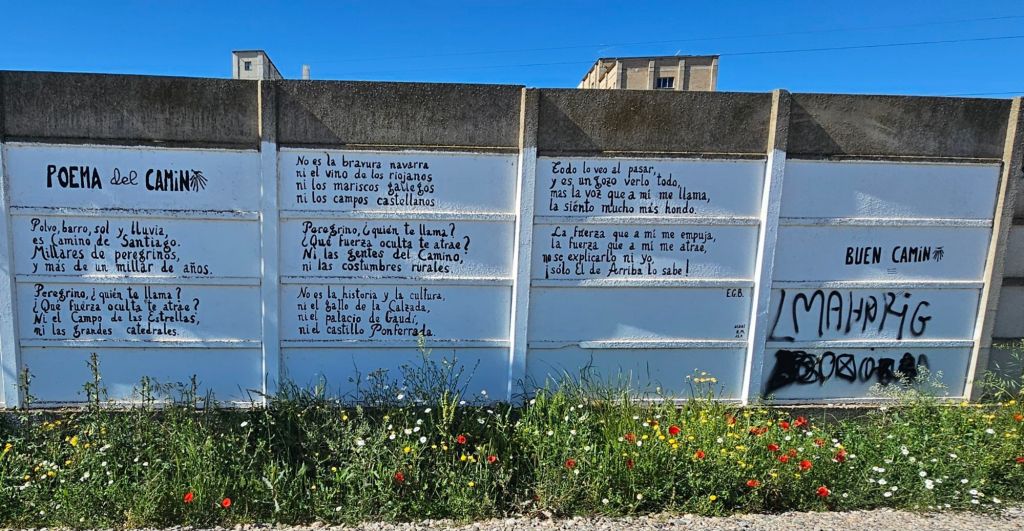 POEMA del CAMINO
Polvo, barro, sol y lluvia,
es Camino de Santiago.
Millares de peregrinos,
y más de un millar de años.
Peregrino, ¿quién te llama?
¿Qué fuerza oculta te atrae?
Ni el Campo de las Estrellas,
ni las grandes catedrales.
No es la bravura navarra
ni el vino de los riojanos
ni los mariscos gallegos
ni los campos castellanos
Peregrino, ¿quién te llama?
¿Qué fuerza oculta te atrae?
Ni las gentes del Camino,
ni las costumbres rurales.
No es la historia y la cultura,
ni el gallo de la Calzada,
ni el palacio de Gaudí,
ni el castillo Ponferrada.
Todo lo veo al pasar,
y es un gozo verlo todo,
mas la voz que a mí me llama,
la siento mucho más hondo.
La fuerza que a mí me empuja,
la fuerza que a mí me atrae,
no se explicarlo ni yo
¡sólo Él de Arriba lo sabe!
E.G.B.
BUEN CAMINO